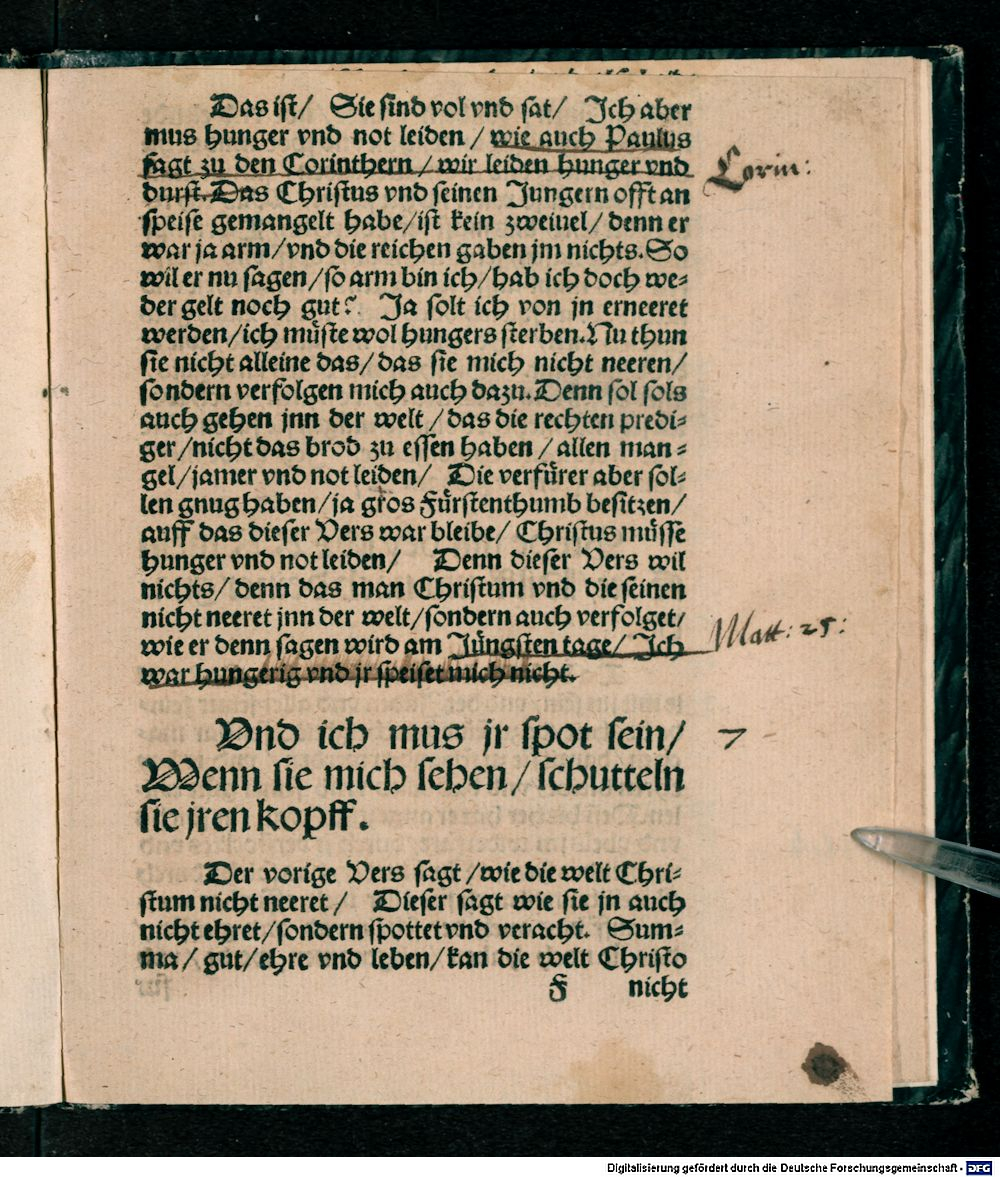 Das ist/ Sie sind vol vnd sat/ Ich aber
mus hunger vnd not leiden / wie auch Paulus
sagt zu den Corinthern / wir leiden hunger vnd
durst. Das Christus vnd seinen Jungern offt an
speise gemangelt habe/ist kein zweiuel/ denn er
war ja arm/vnd die reichen gaben jm nichts. So
wil er nu sagen/so arm bin ich/hab ich doch we-
der gelt noch gut? Ja solt ich von jn erneeret
werden/ich müste wol hungers sterben. Nu thun
sie nicht alleine das/ das sie mich nicht neeren/
sondern verfolgen mich auch dazu. Denn sol sols
auch gehen jnn der welt / das die rechten predi-
ger/nicht das brod zu essen haben / allen man-
gel/jamer vnd not leiden/ Die verfürer aber sol-
len gnug haben/ja gros Fürstenthumb besitzen/
auff das dieser Vers war bleibe/ Christus müsse
hunger vnd not leiden/ Denn dieser Vers wil
nichts/ denn das man Christum vnd die seinen
nicht neeret jnn der welt/sondern auch verfolget/
wie er denn sagen wird am Jüngsten tage/ Ich
war hungerig vnd jr speiset mich nicht.
Corin:
Matt: 25:
Vnd ich mus jr spot sein/
Wenn sie mich sehen/schutteln
sie jren kopff.
7
Der vorige Vers sagt /wie die welt Chri-
stum nicht neeret / Dieser sagt wie sie jn auch
nicht ehret/sondern spottet vnd veracht. Sum-
ma/ gut/ehre vnd leben/kan die welt Christo
F nicht
Digitalisierung gefördert durch die Deutsche Forschungsgemeinschaft - DFG